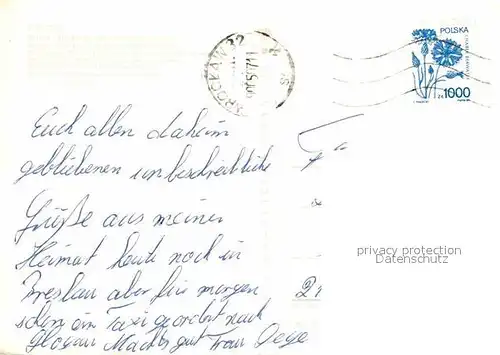 WROCŁAW 32
POLSKA
zł 1000
Euch allen daheim
gebliebenen unbeschreibliche
Grüße aus meiner
Heimat heute noch in
Breslau aber für morgen
schon ein Taxi geordert nach
Glogau Machts gut
Fa
privacy protection
Datenschutz